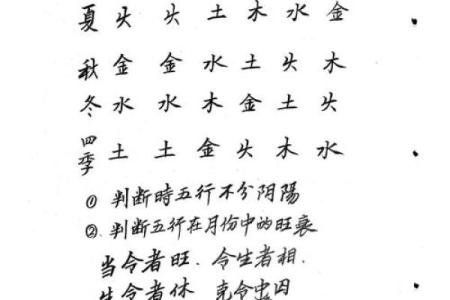 夏 火 火 土 木 水 金
秋 金 金 水 土 火 木
冬 水 水 木 金 土 火
四季 土 土 金 火 木 水
① 判断時五行不分阴陽
② 判断五行在月份中的旺衰
当令者旺、令生者相、
生令者休 克令者囚